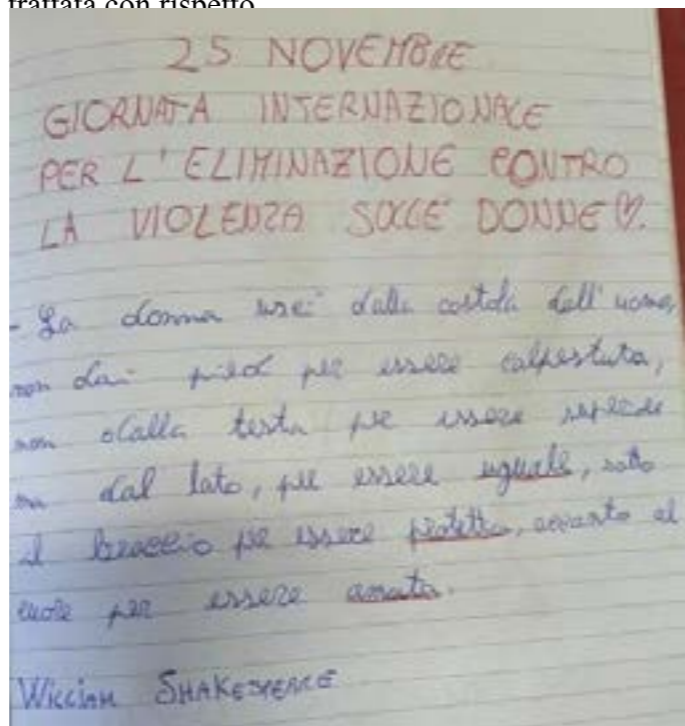 trattata con rispetto
25 NOVEMBRE
GIORNATA INTERNAZIONALE
PER L'ELIMINAZIONE CONTRO
LA VIOLENZA SULLE DONNE ♡.
- La donna uscì dalla costola dell'uomo,
non dai piedi per essere calpestata,
non dalla testa per essere superiore
ma dal lato, per essere uguale, sotto
il braccio per essere protetta, accanto al
cuore per essere amata.
William SHAKESPEARE